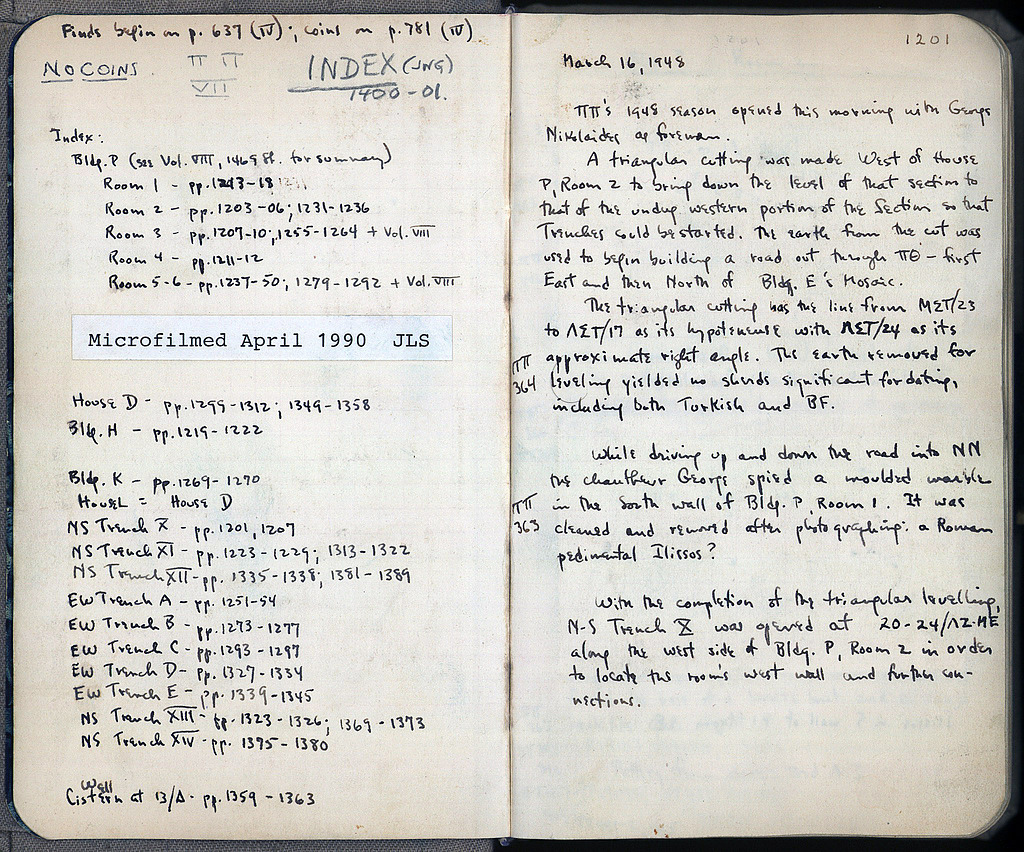 Finds begin on p. 637 (IV); coins on p. 781 (IV)
NO COINS.
ΠΠ
VII
INDEX (JNG)
1400-01.
Index:
Bldg. P (see Vol. VIII, 1469 ff. for summary)
Room 1 - pp. 1243-18
Room 2 - pp. 1203-06; 1231-1236
Room 3 - pp. 1207-10; 1255-1264 + Vol. VIII
Room 4 - pp. 1211-12
Room 5-6 - pp. 1237-50; 1279-1292 + Vol. VIII
Microfilmed April 1990 JLS
House D - pp. 1299-1312; 1349-1358
Bldg. H - pp. 1219-1222
Bldg. K - pp. 1269-1270
House L = House D
NS Trench X - pp. 1201, 1207
NS Trench XI - pp. 1223-1229; 1313-1322
NS Trench XII - pp. 1335-1338; 1381-1389
EW Trench A - pp. 1251-54
EW Trench B - pp. 1273-1277
EW Trench C - pp. 1293-1297
EW Trench D - pp. 1327-1334
EW Trench E - pp. 1339-1345
NS Trench XIII - pp. 1323-1326; 1369-1373
NS Trench XIV - pp. 1375-1380
Well
Cistern at 13/Δ - pp. 1359-1363
1201
March 16, 1948
ΠΠ's 1948 season opened this morning with George
Nikolaides as foreman.
A triangular cutting was made West of House
P, Room 2 to bring down the level of that section to
that of the undug western portion of the Section so that
Trenches could be started. The earth from the cut was
used to begin building a road out through ΠΘ - first
East and then North of Bldg. E's Mosaic.
The triangular cutting has the line from ΜΣΤ/23
to ΛΣΤ/17 as its hypoteneuse with ΛΣΤ/24 as its
approximate right angle. The earth removed for
ΠΠ
364
leveling yielded no sherds significant for dating,
including both Turkish and BF.
While driving up and down the road into NN
the chauffeur George spied a moulded marble
ΠΠ
363
in the South wall of Bldg. P, Room 1. It was
cleaned and removed after photographing: a Roman
pedimental Ilissos?
With the completion of the triangular levelling,
N-S Trench X was opened at 20-24/ΛΖ-ΜΕ
along the west side of Bldg. P, Room 2 in order
to locate this room's west wall and further con-
nections.